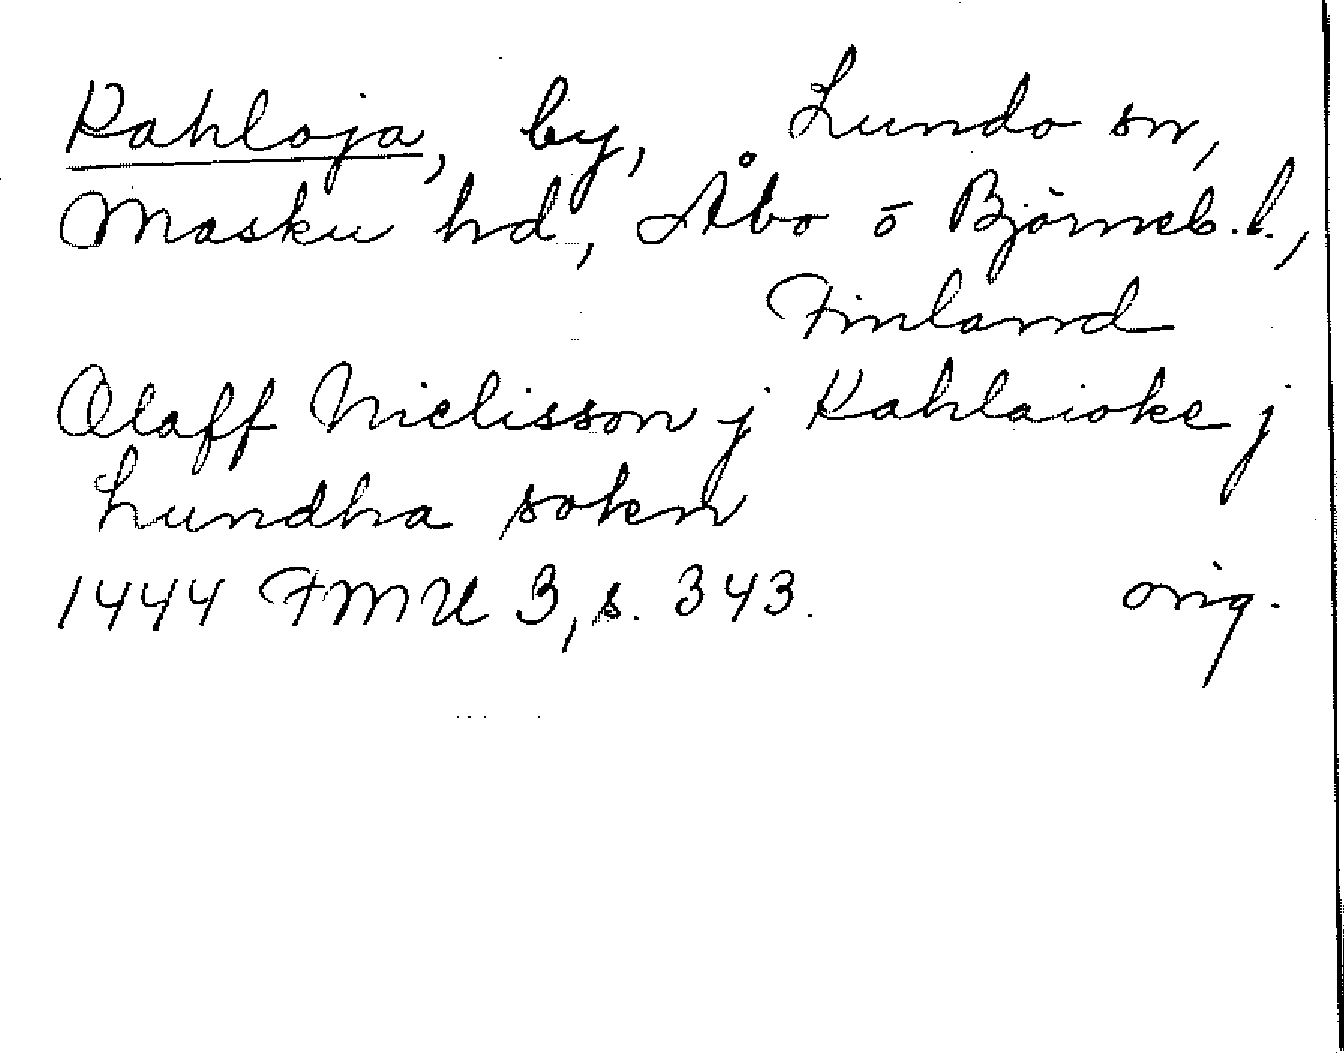 Kahloja, by, Lundo sn,
Masku hd, Åbo o Björneb. l.,
Finland
Olaff Nielisson j Kahlaioke j
Lundha sokn
1444 FMU 3, s. 343. orig.